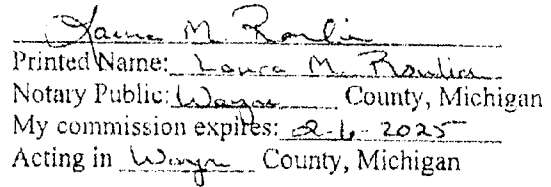 Laura M.
Printed Name: Laura M.
Notary Public: Wayne County, Michigan
My commission expires: 2-6-2025
Acting in Wayne County, Michigan